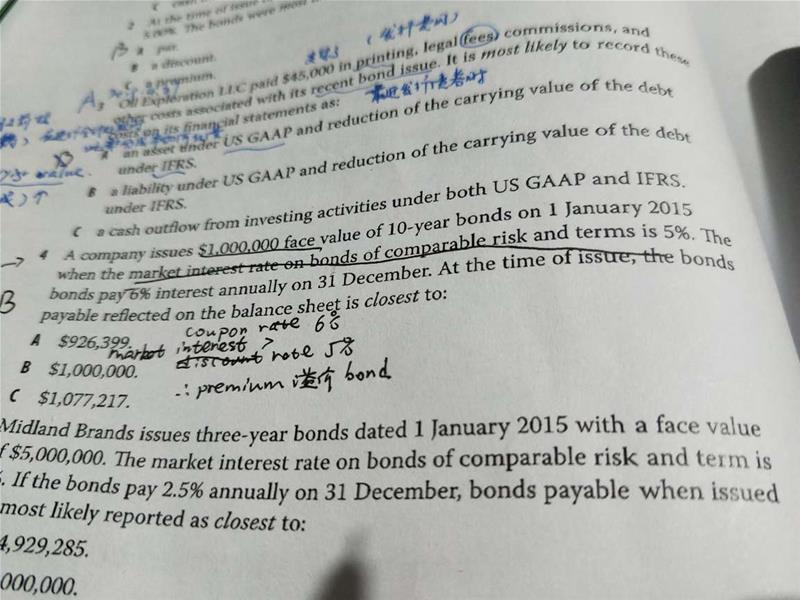 2 At the time of issue
5.00%. The bonds were most
B A par.
B a discount.
C a premium.
3 Oil Exploration LLC paid $45,000 in printing, legal fees, commissions, and
other costs associated with its recent bond issue. It is most likely to record these
costs on its financial statements as:
A an asset under US GAAP and reduction of the carrying value of the debt
under IFRS.
B a liability under US GAAP and reduction of the carrying value of the debt
under IFRS.
C a cash outflow from investing activities under both US GAAP and IFRS.
→ 4 A company issues $1,000,000 face value of 10-year bonds on 1 January 2015
when the market interest rate on bonds of comparable risk and terms is 5%. The
B bonds pay 6% interest annually on 31 December. At the time of issue, the bonds
payable reflected on the balance sheet is closest to:
A $926,399.
coupon rate 6%
market interest >
B $1,000,000.
discount rate 5%
∴ premium 溢价 bond
C $1,077,217.
Midland Brands issues three-year bonds dated 1 January 2015 with a face value
f $5,000,000. The market interest rate on bonds of comparable risk and term is
. If the bonds pay 2.5% annually on 31 December, bonds payable when issued
most likely reported as closest to:
4,929,285.
000,000.